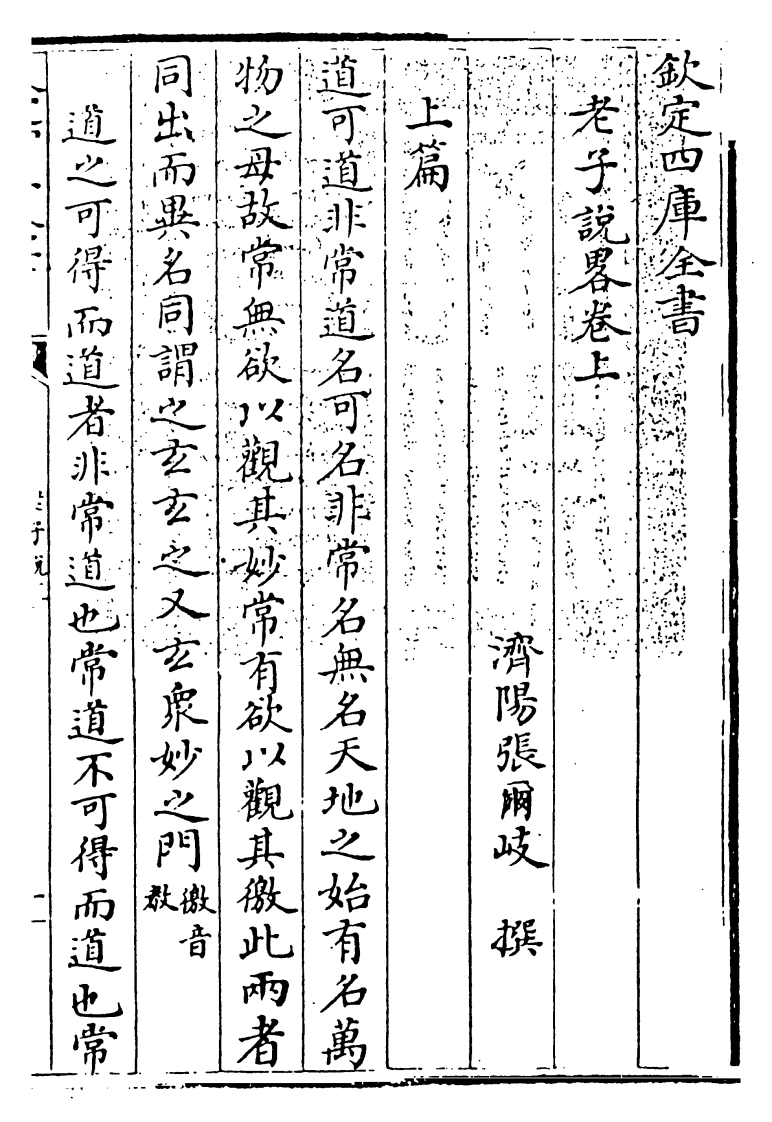 欽定四庫全書
老子說畧卷上
濟陽張爾岐 撰
上篇
道可道非常道名可名非常名無名天地之始有名萬
物之母故常無欲以觀其妙常有欲以觀其徼此兩者
同出而異名同謂之玄玄之又玄衆妙之門徼音教
道之可得而道者非常道也常道不可得而道也常